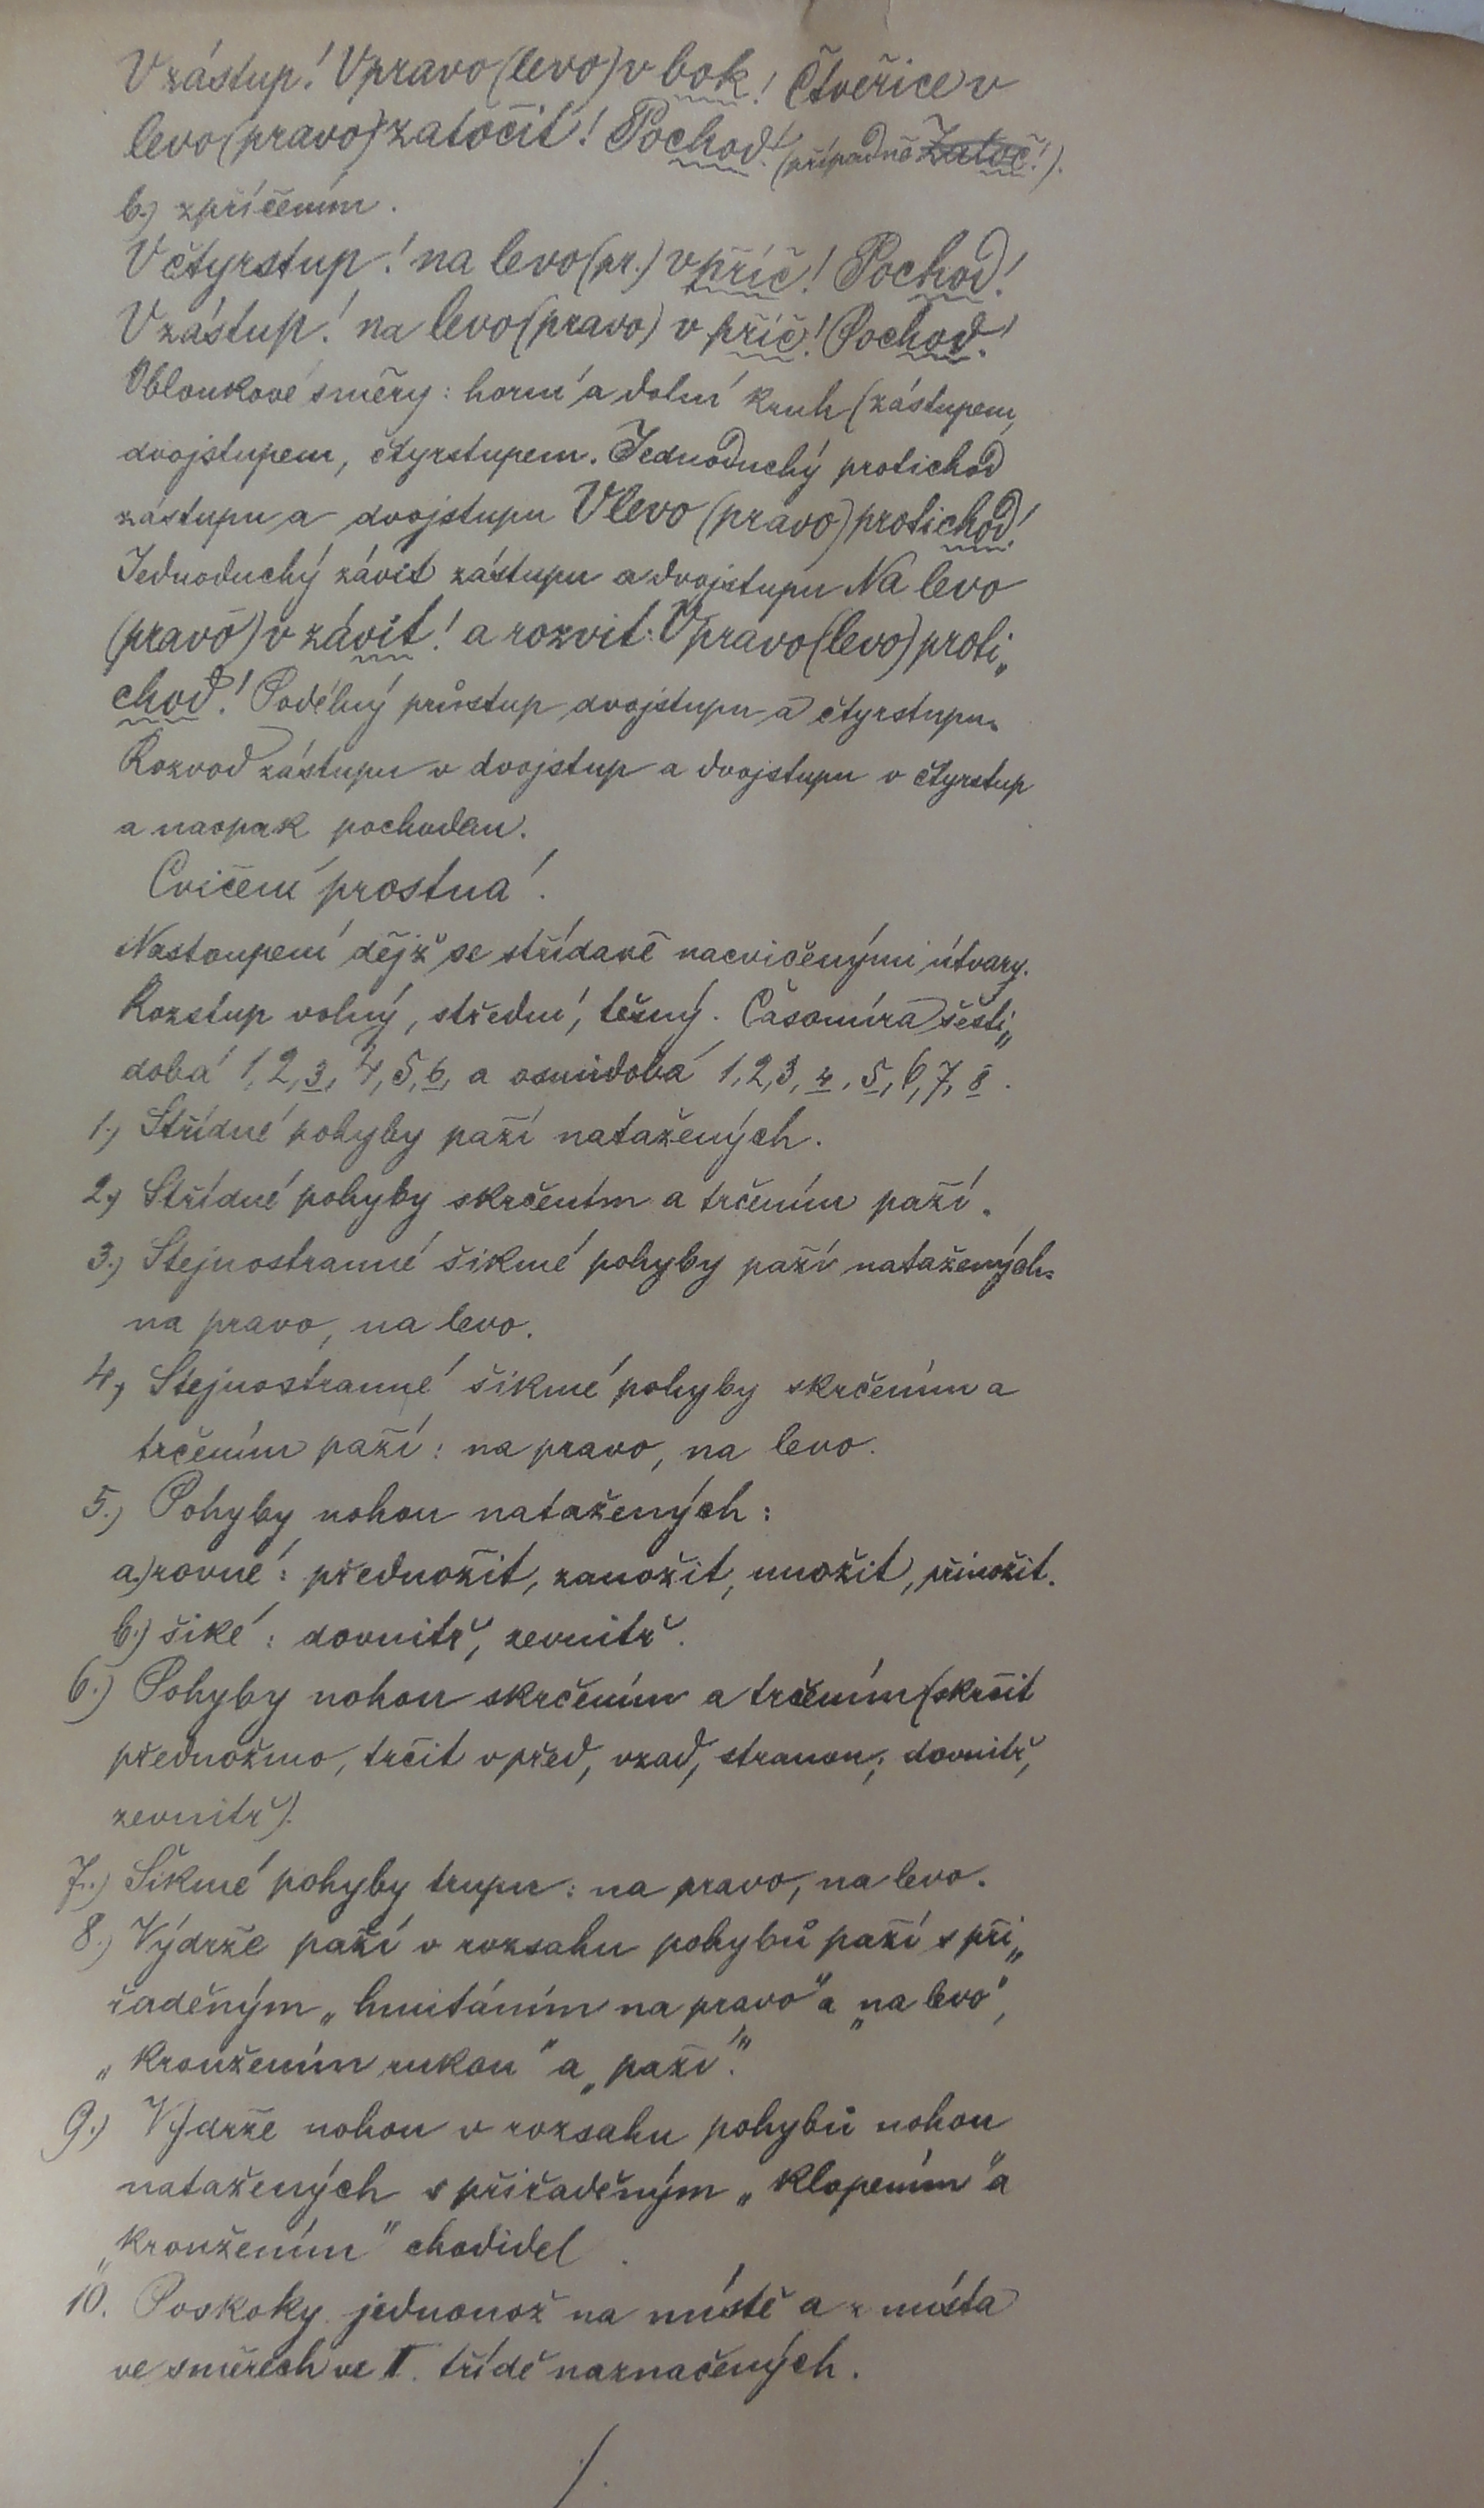 V zástup! Vpravo (levo) v bok! Čtveřice v
levo (pravo) zatočit! Pochod! (případně Zatoč!).
b.) zpříčením.
V čtyrstup! na levo (pr.) v příč! Pochod!
V zástup! na levo (pravo) v příč! Pochod!
Obloukové směry: horní a dolní kruh (zástupem,
dvojstupem, čtyrstupem. Jednoduchý protichod
zástupu a dvojstupu Vlevo (pravo) protichod!
Jednoduchý závit zástupu a dvojstupu Na levo
(pravo) v závit! a rozvit: Vpravo (levo) proti„
chod! Podélný průstup dvojstupu a čtyrstupu.
Rozvod zástupu v dvojstup a dvojstupu v čtyrstup
a naopak pochodem.
Cvičení prostná.
Nastoupení dějž se střídavě nacvičenými útvary.
Rozstup volný, střední, těsný. Časomíra šesti„
dobá 1, 2, 3, 4, 5, 6, a osmidobá 1, 2, 3, 4, 5, 6, 7, 8.
1.) Střídné pohyby paží natažených.
2.) Střídné pohyby skrčením a trčením paží.
3.) Stejnostranné šikmé pohyby paží natažených:
na pravo, na levo.
4.) Stejnostranné šikmé pohyby skrčením a
trčením paží: na pravo, na levo.
5.) Pohyby nohou natažených:
a.) rovné: přednožit, zanožit, unožit, přinožit.
b.) šiké: dovnitř, zevnitř.
6.) Pohyby nohou skrčením a trčením (skrčit
přednožmo, trčit vpřed, vzad, stranou; dovnitř,
zevnitř).
7.) Šikmé pohyby trupu: na pravo, na levo.
8.) Výdrže paží v rozsahu pohybů paží s při„
řaděným „hmitáním na pravo" a „na levo",
„kroužením rukou" a „paží".
9.) Výdrže nohou v rozsahu pohybů nohou
natažených s přiřaděným „klopením" a
„kroužením" chodidel.
10. Poskoky jednonož na místě a z místa
ve směrech ve I. třídě naznačených.
/.